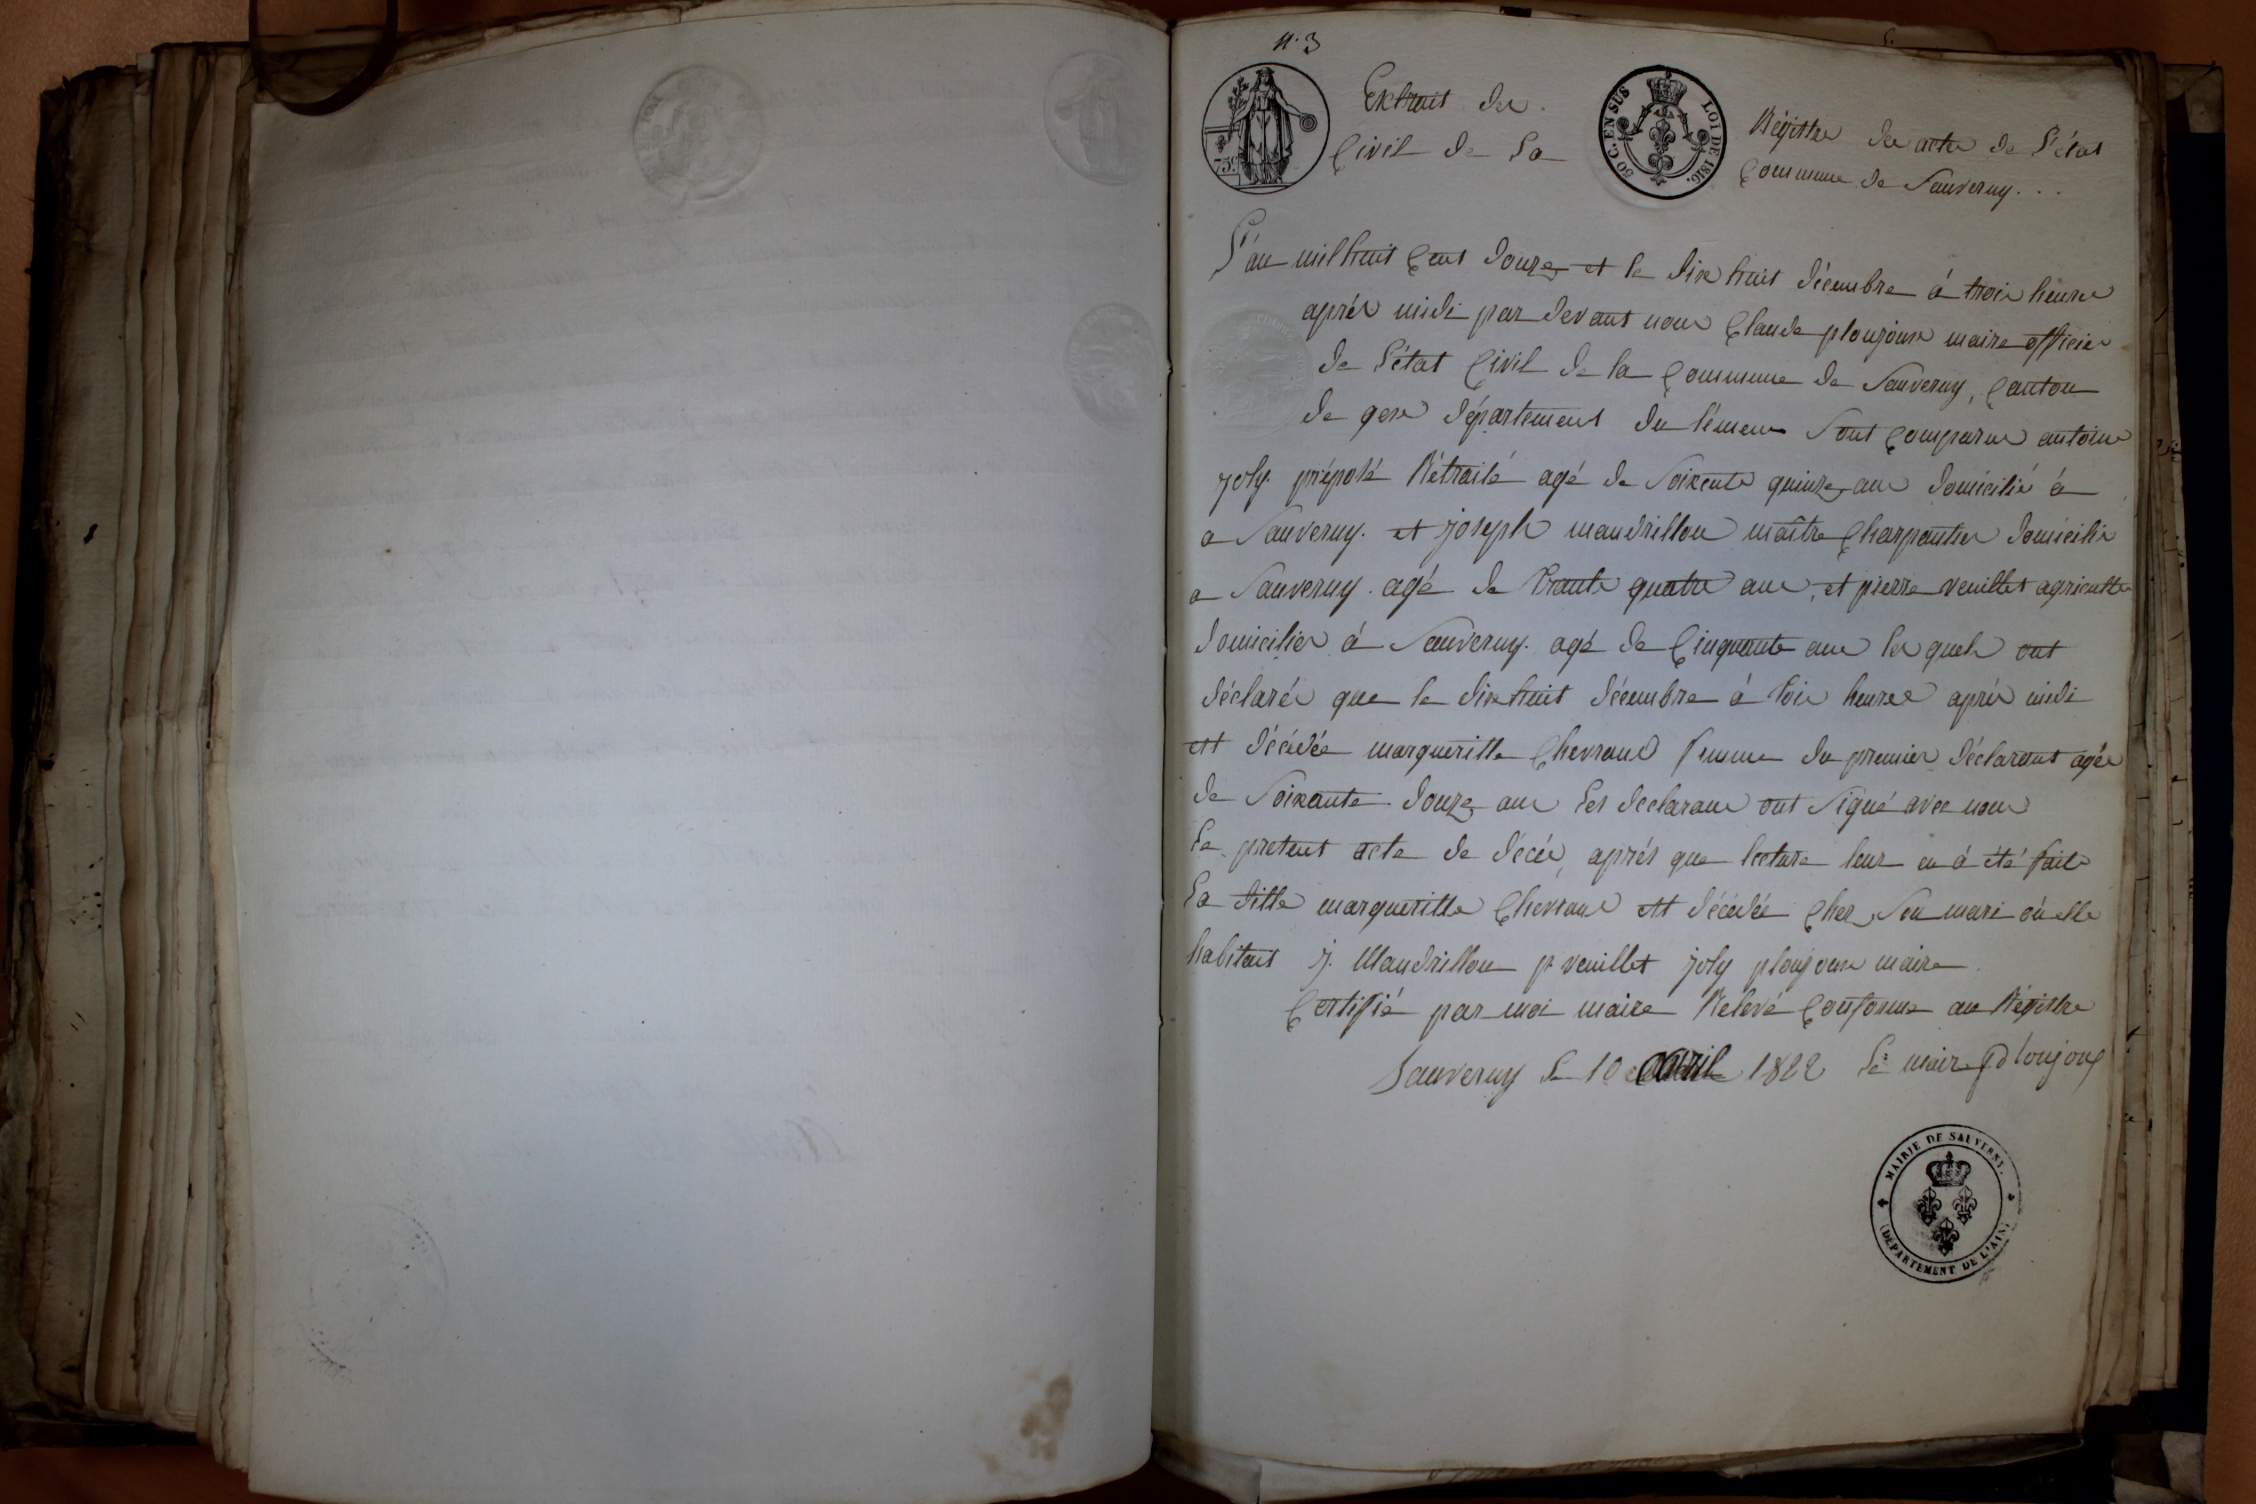 n. 3
Extrait des Régistre des acte de l'état
Civil de la Commune de Sauverny...
75c
50 C. EN SUS LOI DE 1816.
L'an mil huit Cent douze et le dix huit décembre à trois heures
aprés midi par devant nous Claude ploujoux maire officier
de l'état Civil de la Commune de Sauverny, Canton
de gex département du léman Sont Comparus antoine
joly préposé Rétraité agé de Soixente quinze ans domicilié à
a Sauverny. et joseph mandrillon maître Charpentier domicilié
a Sauverny. agé de trante quatre ans, et pierre veuillet agriculte
domicilier á Sauverny. agé de Cinquante ans les quels ont
déclarés que le dix huit décembre à trois heures aprés midi
est décédée margueritte Chevraud femme du premier déclarant agée
de Soixante douze ans les declarans ont Signé avec nous
le present acte de décés, aprés que lecture leur en á été faite
la ditte margueritte Chevraud est décédée Chez Son mari où elle
habitait j. Mandrillon p veuillet joly ploujoux maire
Certifié par moi maire Relevé Conforme au Régistre
Sauverny le 10 avril 1822 le maire ploujoux
MAIRIE DE SAUVERNY.
(DÉPARTEMENT DE L'AIN)